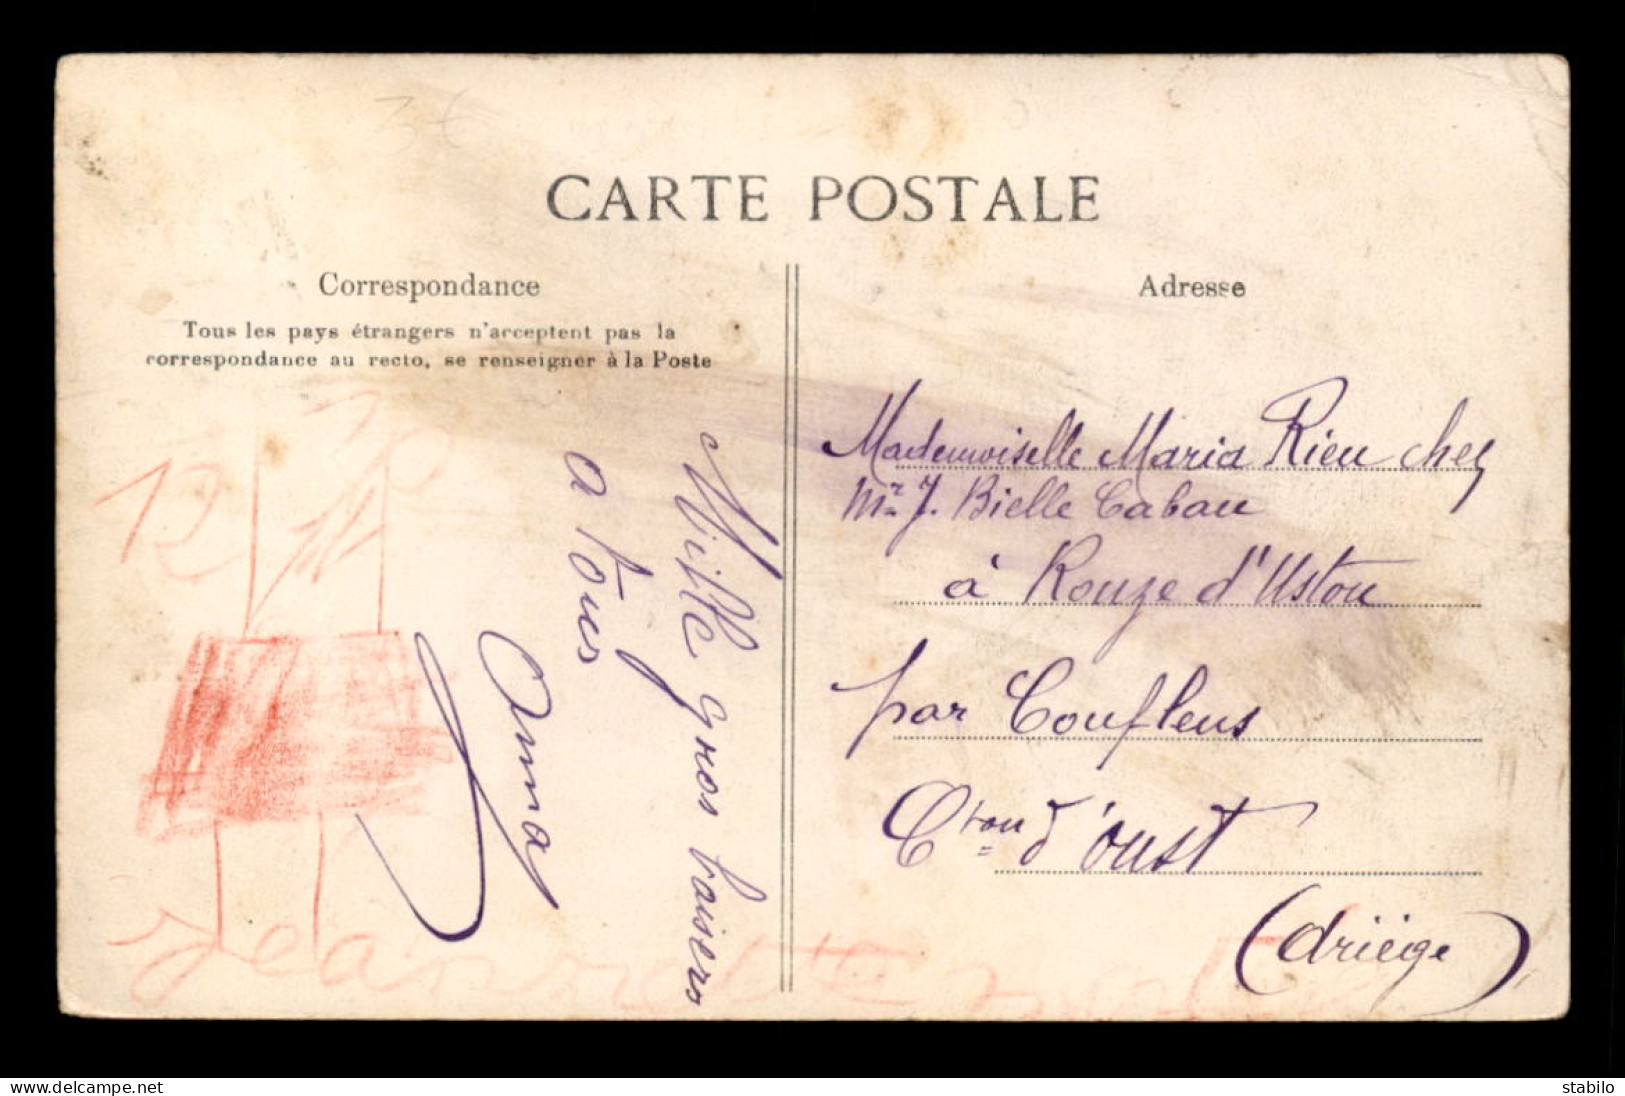 3€
CARTE POSTALE
Correspondance
Tous les pays étrangers n'acceptent pas la
correspondance au recto, se renseigner à la Poste
12
Mille gros baisers
a tous
Anna
Jeannette
Adresse
Mademoiselle Maria Rieu chez
Mr J. Bielle Cabau
à Rouze d'Ustou
par Couflens
Cton d'oust
(Ariège)
www.delcampe.net
stabilo